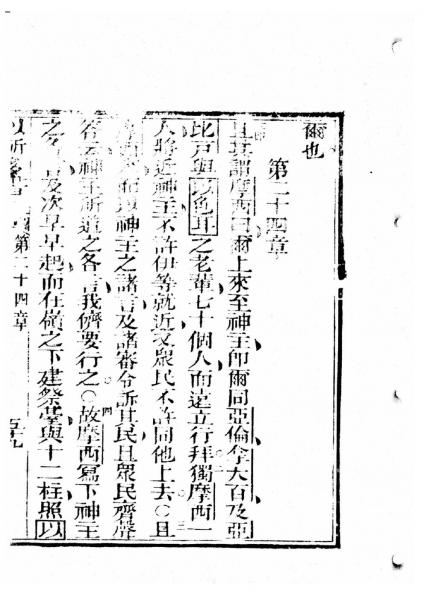 爾也
第二十四章
且其謂摩西曰爾上來至神主卽爾同亞倫拿大百及亞
比戸與以色耳之老輩七十個人而遠立行拜獨摩西一
人將近神主不許伊等就近又衆民不許同他上去○且
神主之諸言及諸審令訴其民且衆民齊聲
答云神主所道之各言我儕要行之○故摩西寫下神主
之各言及次早早起而在嶺之下建祭臺與十二柱照以
第二十四章
五十九